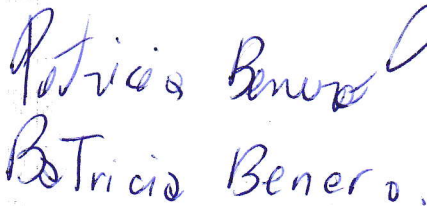 Patricia Benero
BaTricia Benero.